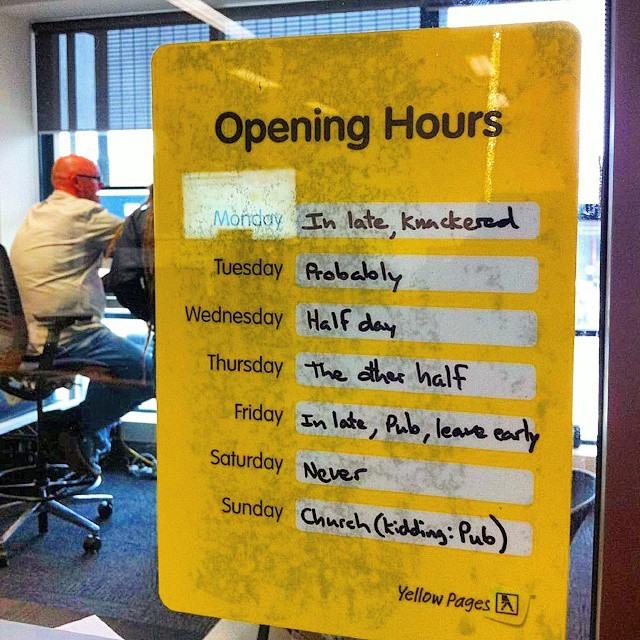 Opening Hours
Monday In late, knackered
Tuesday Probably
Wednesday Half day
Thursday The other half
Friday In late, Pub, leave early
Saturday Never
Sunday Church (kidding: Pub)
Yellow Pages